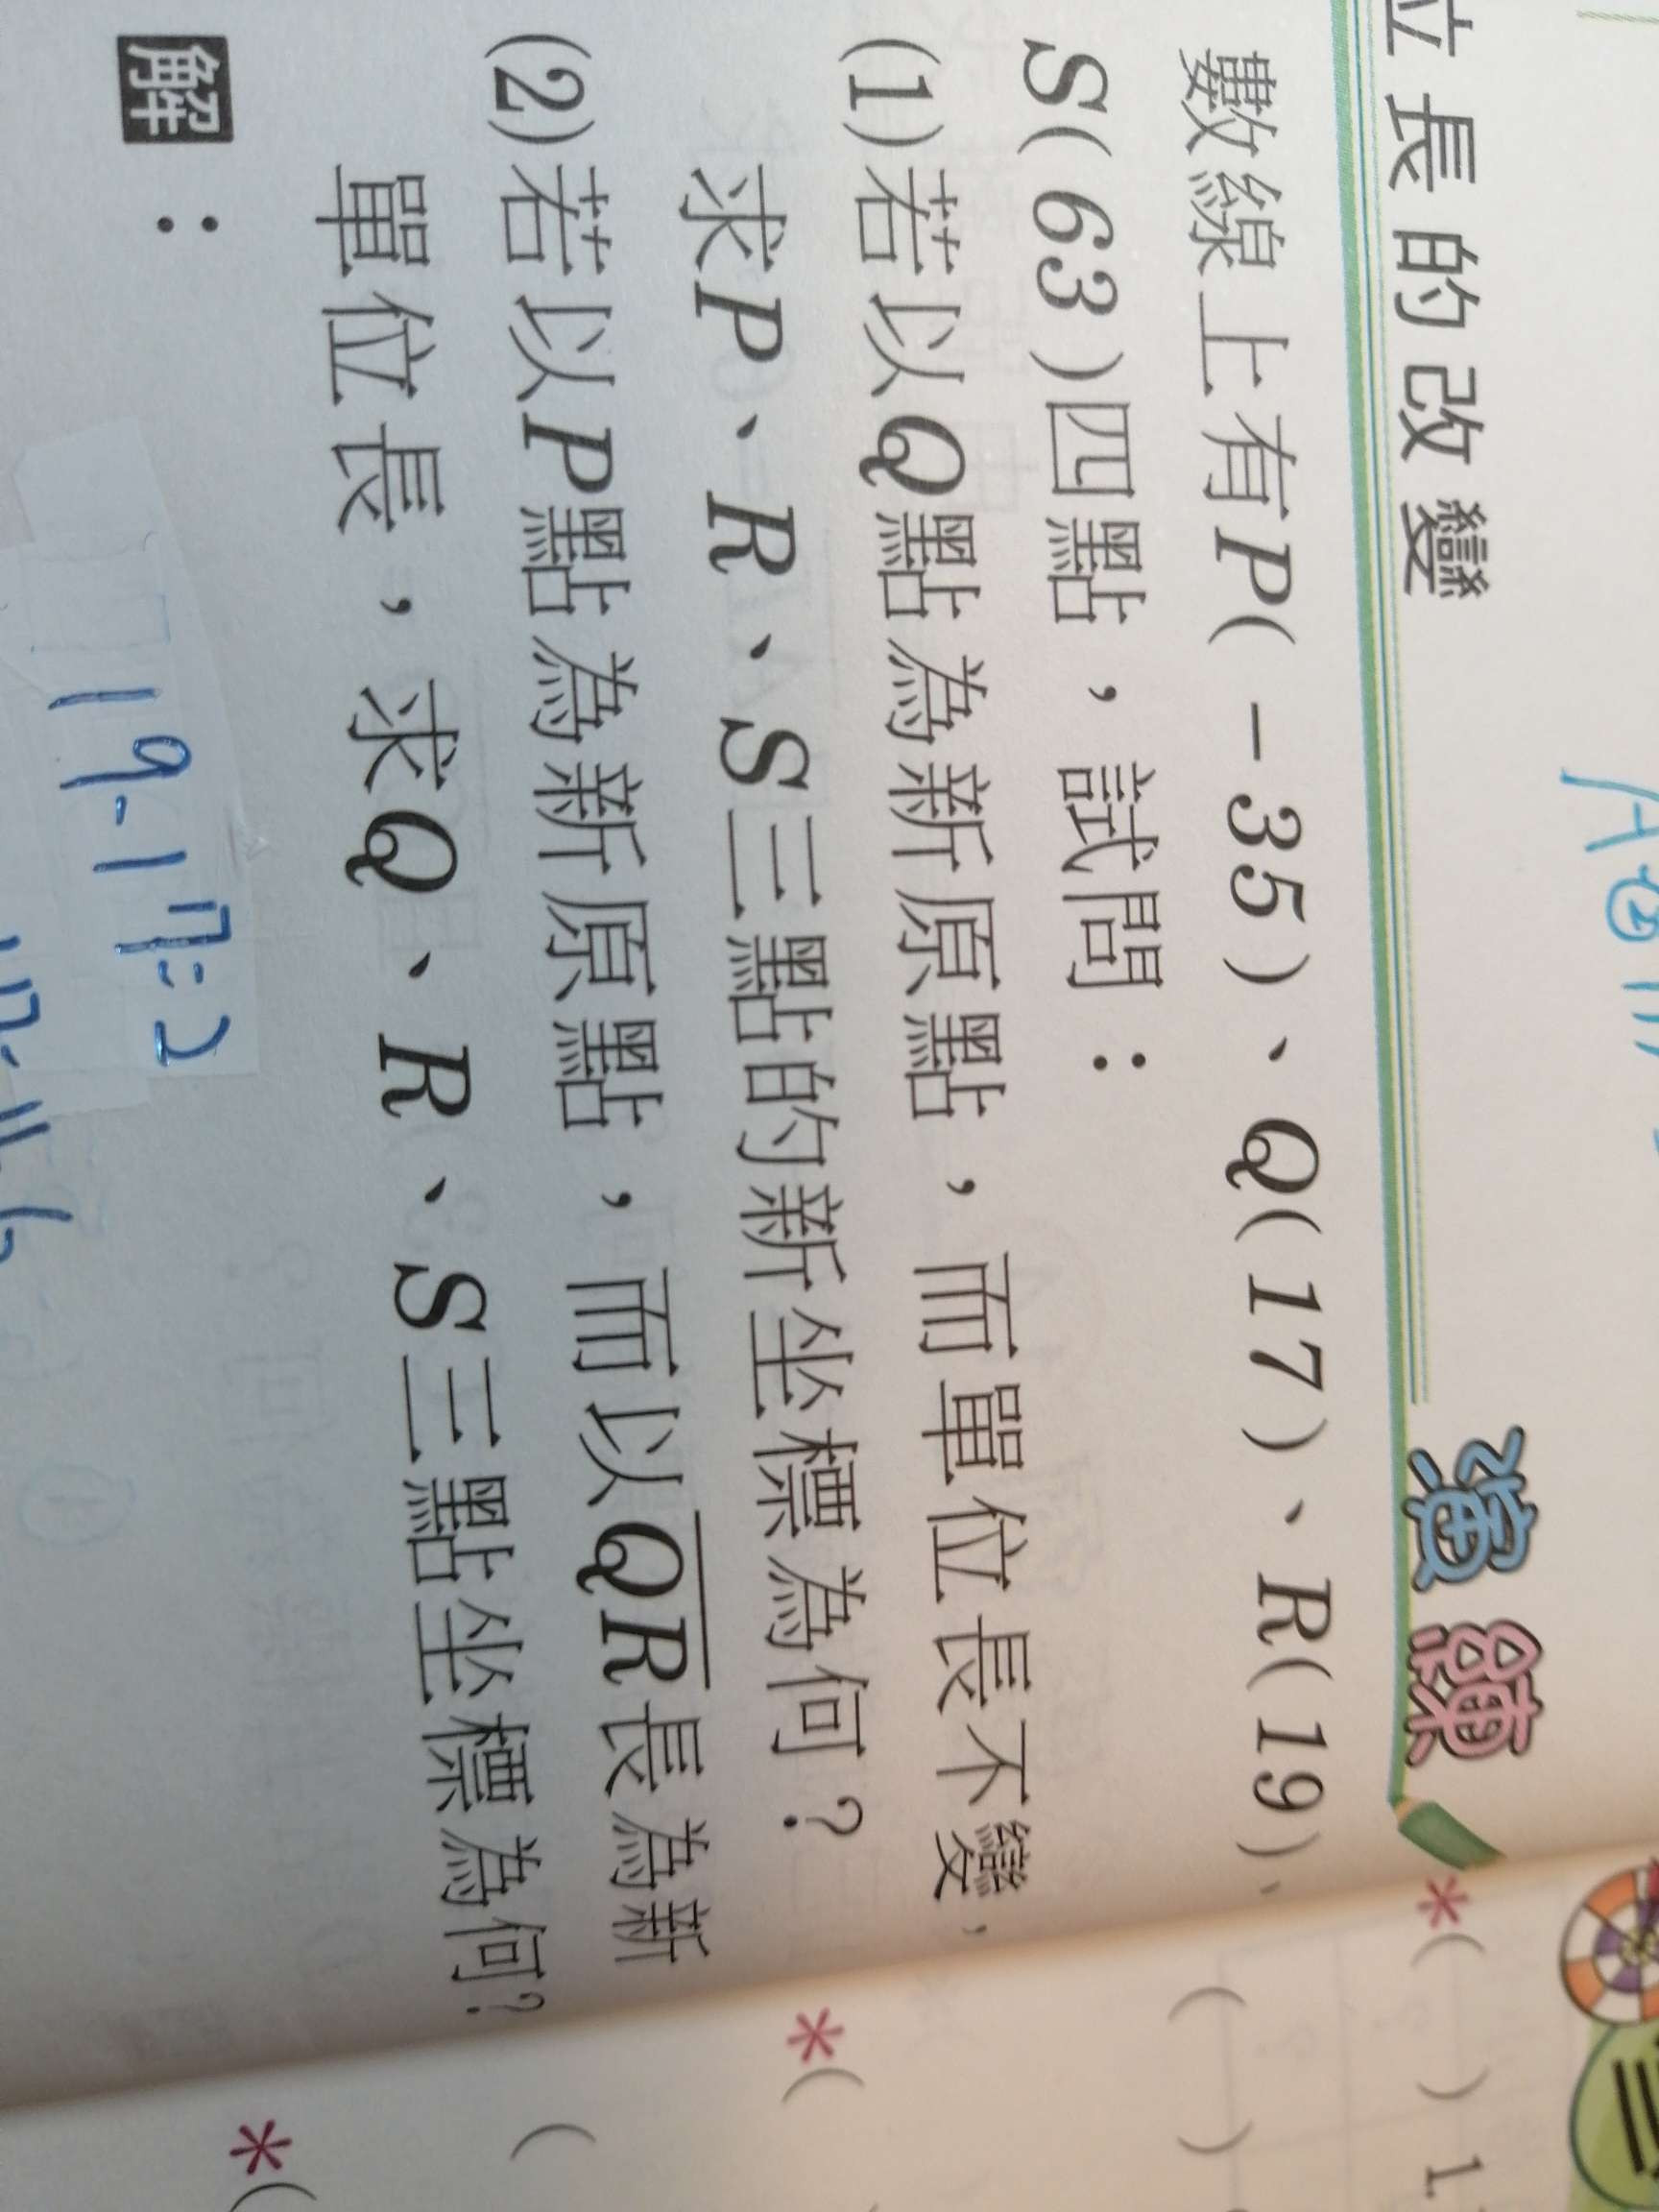 位長的改變
演練
數線上有P(-35)、Q(17)、R(19)、
S(63)四點，試問：
(1)若以Q點為新原點，而單位長不變，
求P、R、S三點的新坐標為何？
(2)若以P點為新原點，而以QR長為新
單位長，求Q、R、S三點坐標為何？
解：
19-17=2
*( ) 1.
( )
*(
(
*(